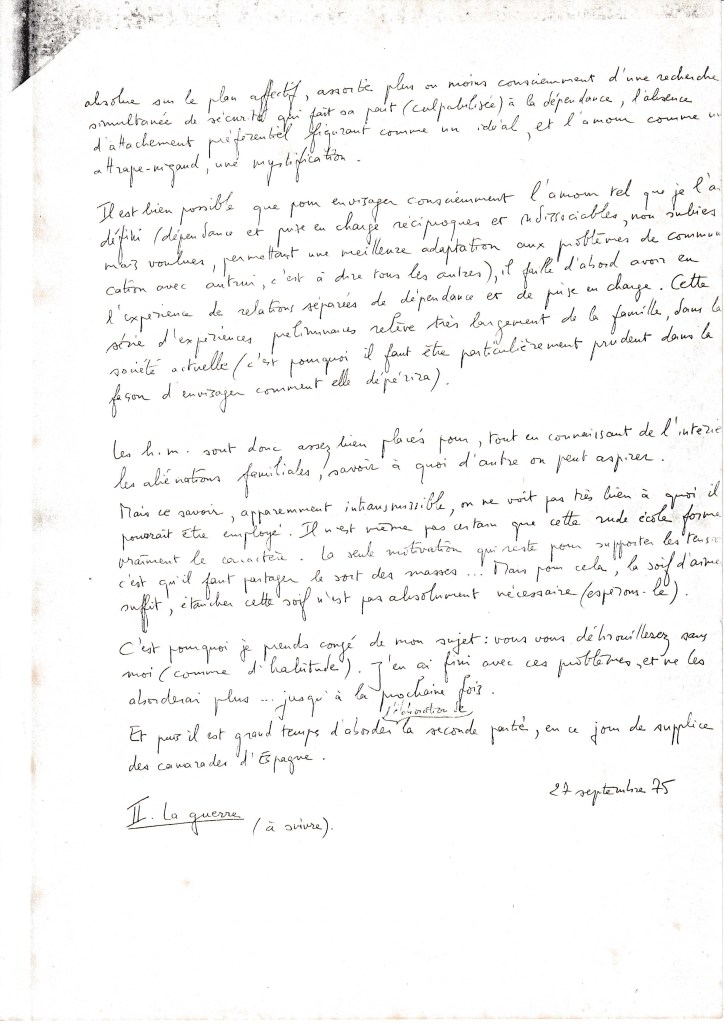 absolue sur le plan affectif, assortie plus ou moins consciemment d'une recherche
simultanée de sécurité qui fait sa part (culpabilisée) à la dépendance, l'absence
d'attachement préférentiel figurant comme un idéal, et l'amour comme un
attrape-nigaud, une mystification.
Il est bien possible que pour envisager consciemment l'amour tel que je l'ai
défini (dépendance et prise en charge réciproques et indissociables, non subies
mais voulues, permettant une meilleure adaptation aux problèmes de commu
cation avec autrui, c'est à dire tous les autres), il faille d'abord avoir eu
l'expérience de relations séparées de dépendance et de prise en charge. Cette
série d'expériences préliminaires relève très largement de la famille, dans la
société actuelle (c'est pourquoi il faut être particulièrement prudent dans la
façon d'envisager comment elle dépérira).
Les h.m. sont donc assez bien placés pour, tout en connaissant de l'intérie
les aliénations familiales, savoir à quoi d'autre on peut aspirer.
Mais ce savoir, apparemment intransmissible, on ne voit pas très bien à quoi il
pourrait être employé. Il n'est même pas certain que cette rude école forme
vraiment le caractère. La seule motivation qui reste pour supporter les tensio
c'est qu'il faut partager le sort des masses... Mais pour cela, la soif d'aime
suffit, étancher cette soif n'est pas absolument nécessaire (espérons-le).
C'est pourquoi je prends congé de mon sujet : vous vous débrouillerez sans
moi (comme d'habitude). J'en ai fini avec ces problèmes, et ne les
aborderai plus... jusqu'à la prochaine fois.
Et puis il est grand temps d'aborder l'élaboration de la seconde partie, en ce jour de supplice
des camarades d'Espagne.
27 septembre 75
II. La guerre (à suivre).